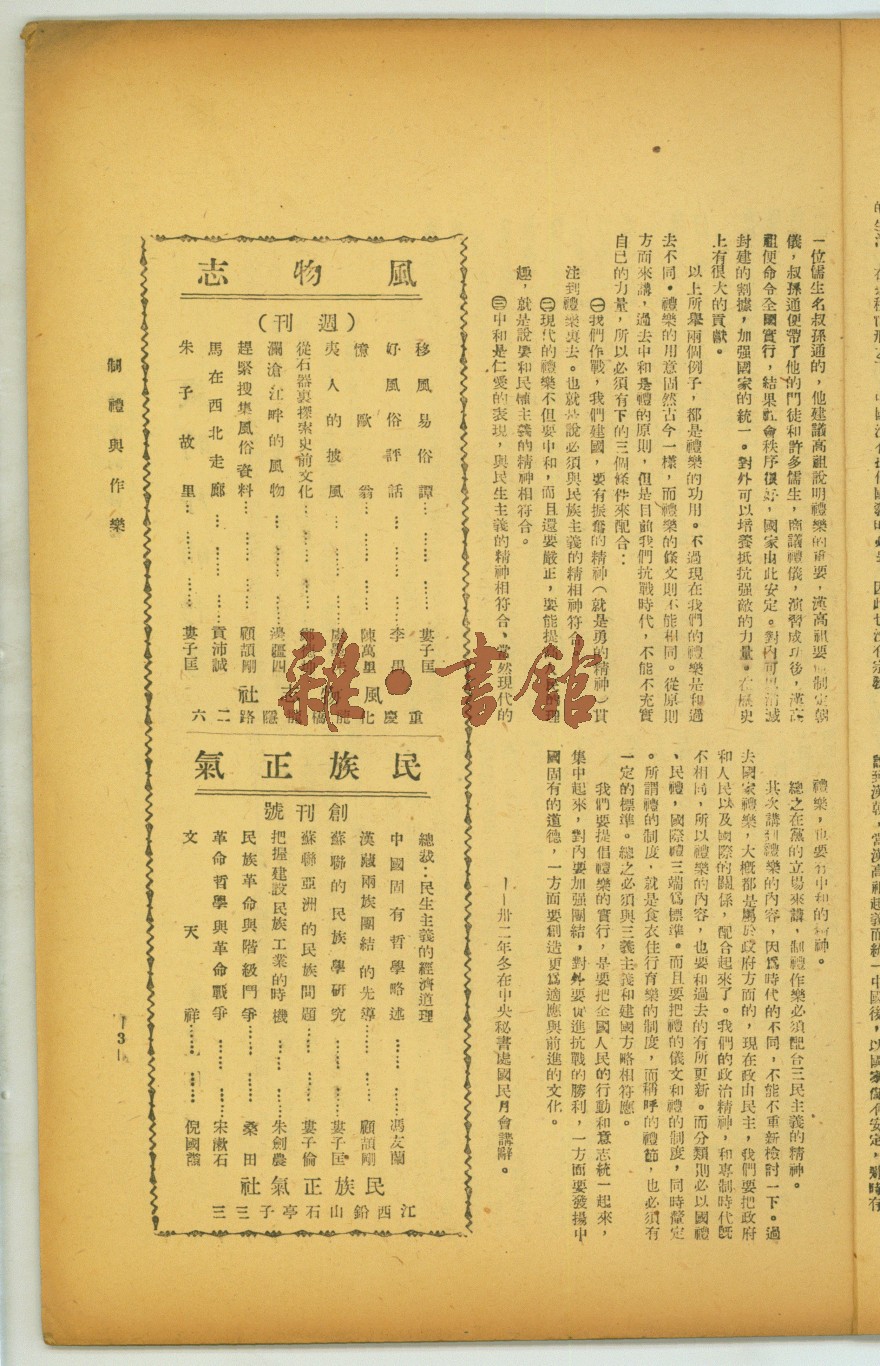 一位儒生名叔孫通的，他建議高祖說明禮樂的重要，漢高祖要他制定朝
儀，叔孫通便帶了他的門徒和許多儒生，商議禮儀，演習成功後，漢高
祖便命令全國實行，結果社會秩序很好，國家由此安定。對內可以消滅
封建的割據，加强國家的統一。對外可以培養抵抗强敵的力量。在歷史
上有很大的貢獻。
以上所舉兩個例子，都是禮樂的功用。不過現在我們的禮樂是和過
去不同。禮樂的用意固然古今一樣，而禮樂的條文則不能相同。從原則
方面來講，過去中和是禮的原則，但是目前我們抗戰時代，不能不充實
自已的力量，所以必須有下的三個條件來配合：
㊀我們作戰，我們建國，要有振奮的精神（就是勇的精神）貫
注到禮樂裏去。也就是說必須與民族主義的精相神符合。
㊁現代的禮樂不但要中和，而且還要嚴正，要能提高人民的理
趣，就是說要和民權主義的精神相符合。
㊂中和是仁愛的表現，與民生主義的精神相符合、當然現代的
禮樂，也要有中和的精神。
總之在黨的立場來講，制禮作樂必須配合三民主義的精神。
其次講到禮樂的內容，因爲時代的不同，不能不重新檢討一下。過
去國家禮樂，大概都是屬於政府方面的，現在政由民主，我們要把政府
和人民以及國際的關係，配合起來了。我們的政治精神，和專制時代旣
不相同，所以禮樂的內容，也要和過去的有所更新。而分類則必以國禮
、民禮，國際禮三端爲標準。而且要把禮的儀文和禮的制度，同時釐定
。所謂禮的制度，就是食衣住行育樂的制度，而稱呼的禮節，也必須有
一定的標準。總之必須與三義主義和建國方略相符應。
我們要提倡禮樂的實行，是要把全國人民的行動和意志統一起來，
集中起來，對內要加强團結，對外要促進抗戰的勝利，一方面要發揚中
國固有的道德，一方面要創造更爲適應與前進的文化。
——卅二年冬在中央秘書處國民月會講辭。
風物志
（週刊）
移風易俗譚……婁子匡
好風俗評話……李
憶歐翁……陳萬里
夷人的披風……
從石器裏探索史前文化……
瀾滄江畔的風物……
趕緊搜集風俗資料……顧頡剛
馬在西北走廊……賁沛誠
朱子故里……婁子匡
風物志社
重慶化龍橋龍隱路二六
民族正氣
創刊號
總裁：民生主義的經濟道理
中國固有哲學略述……馮友蘭
漢藏兩族團結的先導……顧頡剛
蘇聯的民族學研究……婁子匡
蘇聯亞洲的民族問題……婁子倫
把握建設民族工業的時機……朱劍農
民族革命與階級鬥爭……桑田
革命哲學與革命戰爭……宋漱石
文天祥……倪國讚
民族正氣社
江西鉛山石亭子三三
制禮與作樂
—3—
雜·書館